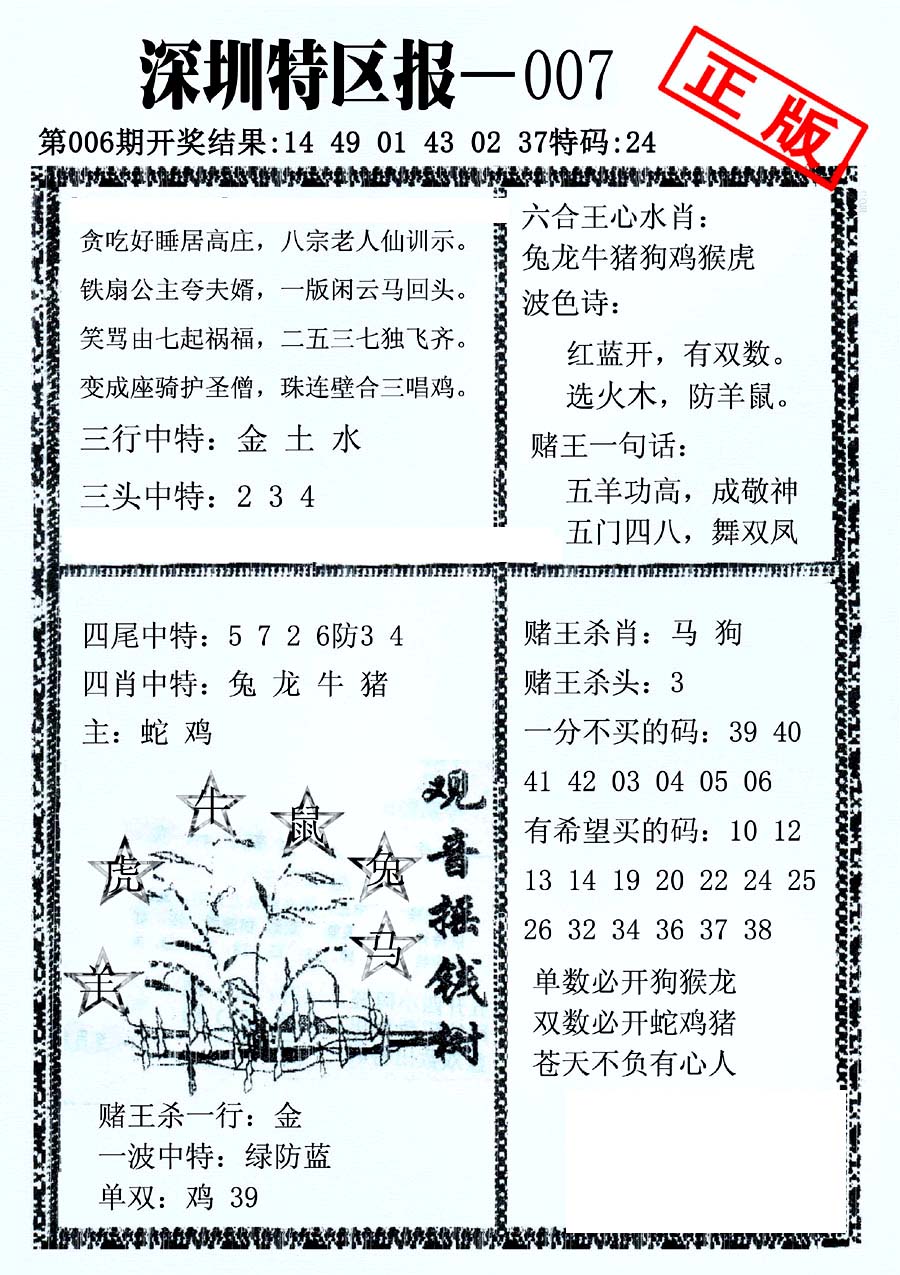 深圳特区报—007
正版
第006期开奖结果:14 49 01 43 02 37特码:24
贪吃好睡居高庄，八宗老人仙训示。
铁扇公主夸夫婿，一版闲云马回头。
笑骂由七起祸福，二五三七独飞齐。
变成座骑护圣僧，珠连壁合三唱鸡。
三行中特：金 土 水
三头中特：2 3 4
六合王心水肖：
兔龙牛猪狗鸡猴虎
波色诗：
红蓝开，有双数。
选火木，防羊鼠。
赌王一句话：
五羊功高，成敬神
五门四八，舞双凤
四尾中特：5 7 2 6防3 4
四肖中特：兔 龙 牛 猪
主：蛇 鸡
牛
鼠
虎
兔
马
羊
观音摇钱树
赌王杀一行：金
一波中特：绿防蓝
单双：鸡 39
赌王杀肖：马 狗
赌王杀头：3
一分不买的码：39 40
41 42 03 04 05 06
有希望买的码：10 12
13 14 19 20 22 24 25
26 32 34 36 37 38
单数必开狗猴龙
双数必开蛇鸡猪
苍天不负有心人